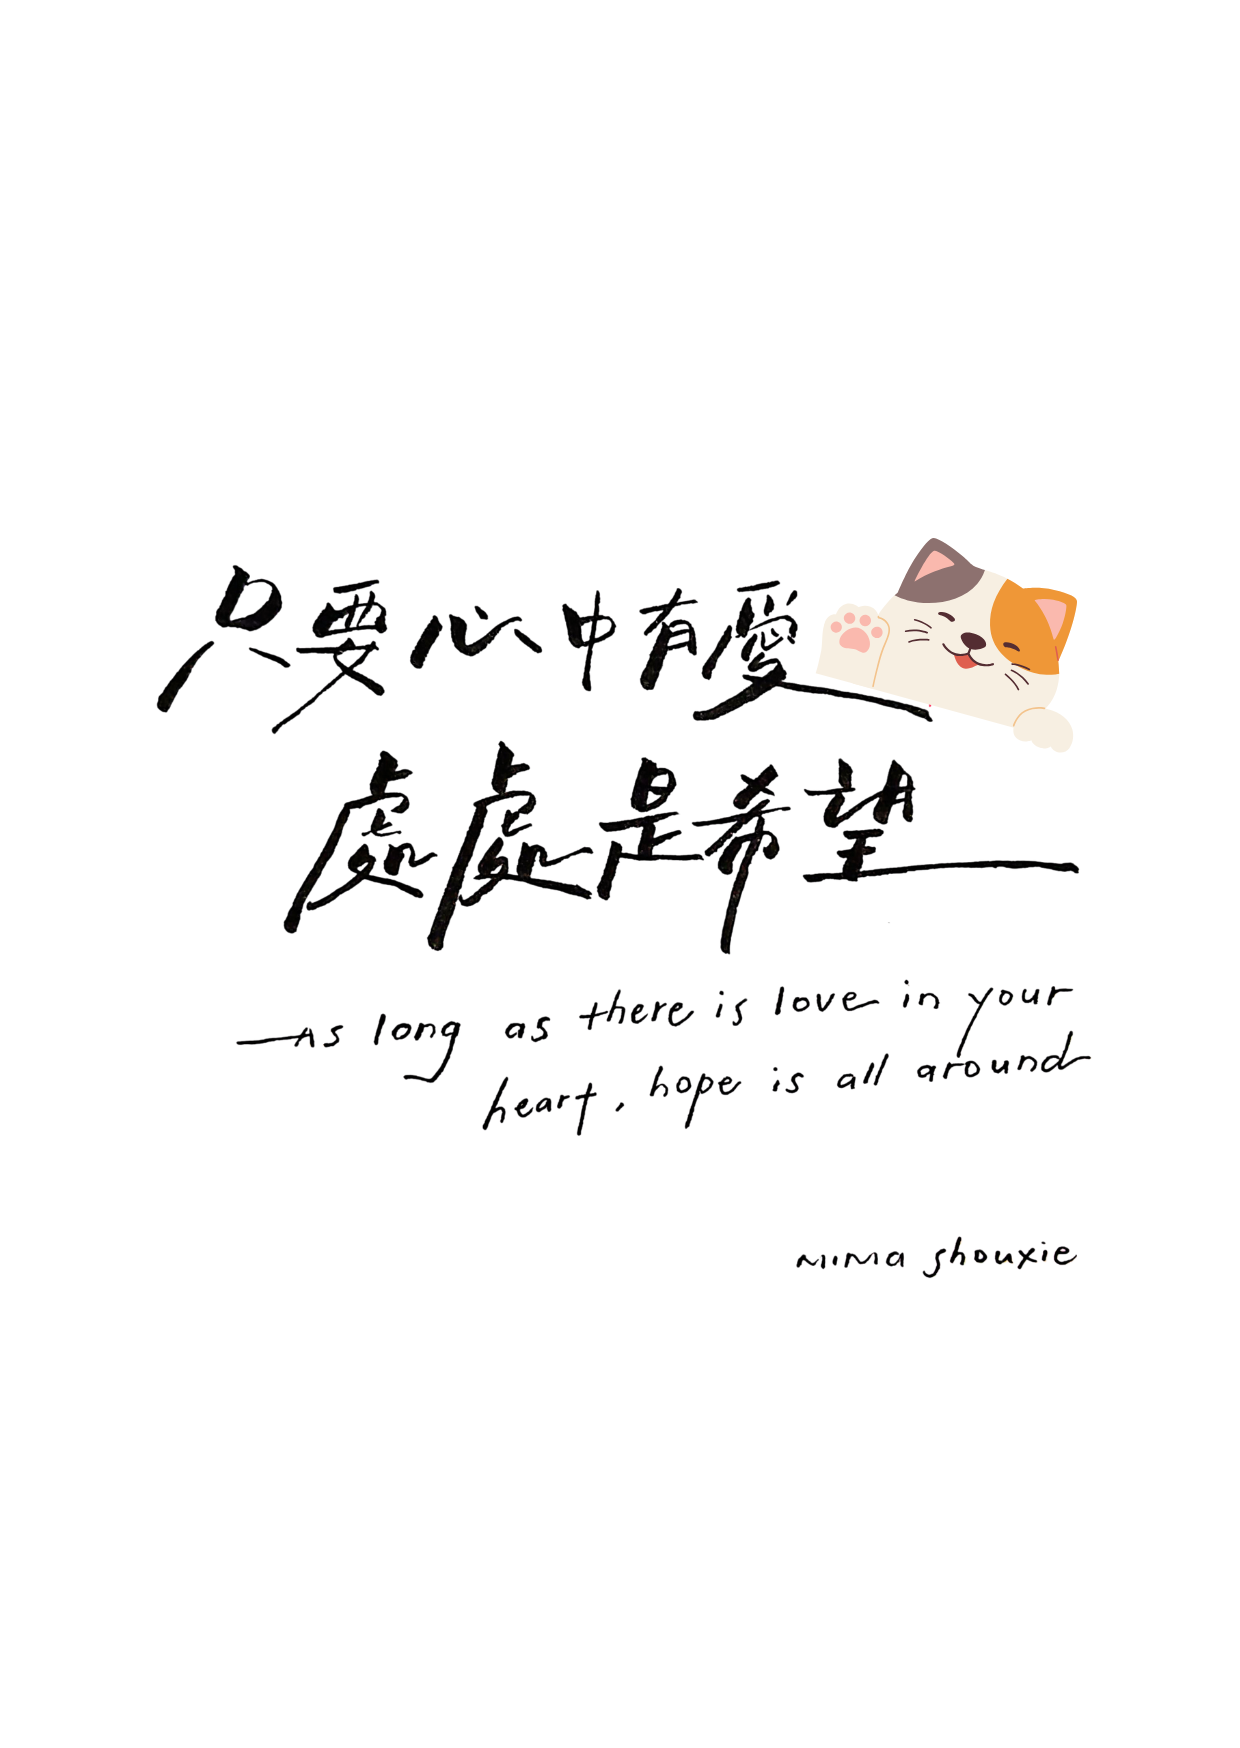 只要心中有愛
處處是希望
As long as there is love in your
heart, hope is all around
MiMa shouxie